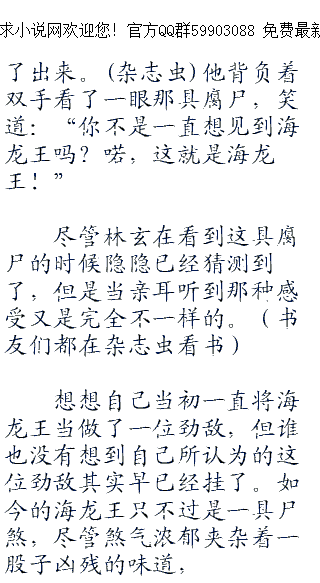 求小说网欢迎您！官方QQ群59903088 免费最新
了出来。(杂志虫)他背负着
双手看了一眼那具腐尸，笑
道：“你不是一直想见到海
龙王吗？喏，这就是海龙
王！”
尽管林玄在看到这具腐
尸的时候隐隐已经猜测到
了，但是当亲耳听到那种感
受又是完全不一样的。（书
友们都在杂志虫看书）
想想自己当初一直将海
龙王当做了一位劲敌，但谁
也没有想到自己所认为的这
位劲敌其实早已经挂了。如
今的海龙王只不过是一具尸
煞，尽管煞气浓郁夹杂着一
股子凶残的味道，